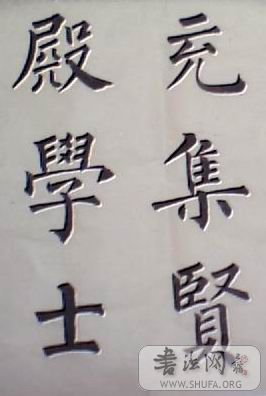 充集賢
殿學士
書法网
WWW.SHUFA.ORG